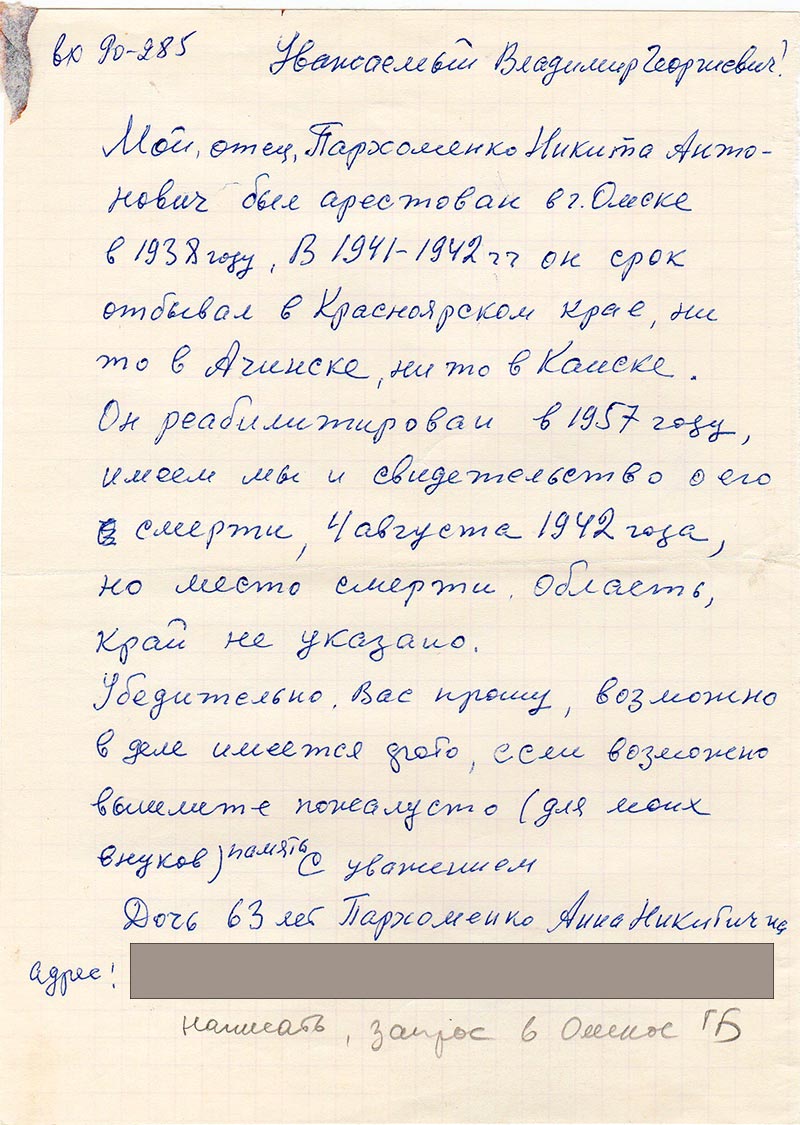 вх 90-285
Уважаемый Владимир Георгиевич!
Мой, отец, Пархоменко Никита Анто-
нович был арестован в г. Омске
в 1938 году, В 1941-1942 гг он срок
отбывал в Красноярском крае, ни
то в Ачинске, ни то в Канске.
Он реабилитирован в 1957 году,
имеем мы и свидетельство о его
смерти, 4 августа 1942 года,
но место смерти. Область,
край не указано.
Убедительно, Вас прошу, возможно
в деле имеется фото, если возможно
вышлите пожалусто (для моих
внуков) память С уважением
Дочь 63 лет Пархоменко Анна Никитична
адрес!
написать, запрос в Омское ГБ